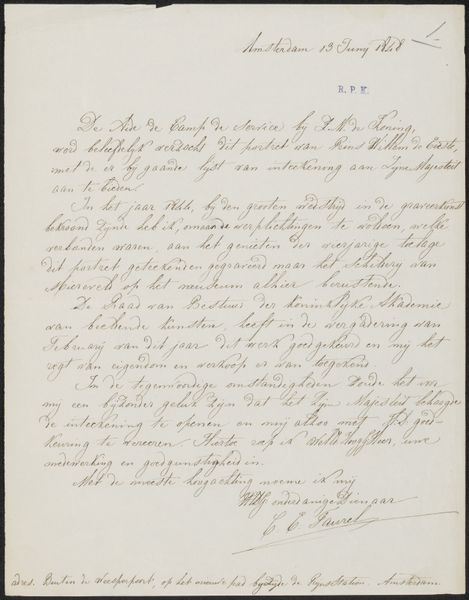 1.
Amsterdam 13 Juny 1848
R. P. K.
De Aide de Camp de Service by Z. M. de Koning,
word beleefdelyk verzocht dit portret van Prins Willem de Eerste,
met de er by gaande lyst van inteekening aan Zyne Majesteit
aan te bieden.
In het jaar 1844, by den grooten wedstryd in de graveerkunst
bekroond zynde heb ik, om aan de verplichtingen te voldoen, welke
verbonden waren, aan het genieten der vierjarige toelage
dit portret geteekend en gegraveerd naar het schildery van
Miereveld op het museum alhier berustende.
De Raad van Bestuur der Koninklyke Akademie
van beeldende kunsten, heeft in de vergadering van
February van dit jaar dit werk goedgekeurd en my het
regt van eigendom en verkoop er van toegekend.
In de tegenwoordige omstandigheden zoude het voor
my een byzonder geluk zyn dat het Zyne Majesteit behaagde
de inteekening te openen en my aldus met goed-
keuring te vereeren. Hiertoe roep ik uwe
medewerking en goedgunstigheid in.
Met de meeste hoogachting noeme ik my
onderdanige Dienaar
C. E. Taurel
adres. Buiten de Weesperpoort, op het nieuwe pad by de Rynstation. Amsterdam.